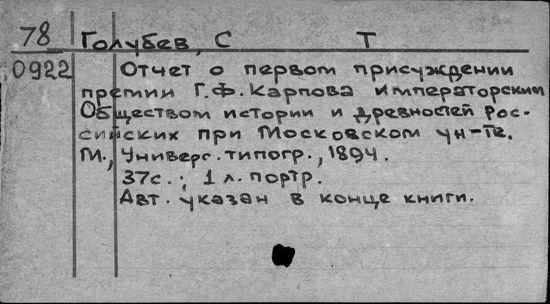 78 Голубев, С Т
0922 Отчет о первом присуждении
премии Г.Ф.Карпова императорским
Обществом истории и древностей рос-
сийских при Московском ун-те.
М., Универс.типогр., 1894.
37с.; 1 л. портр.
Авт. указан в конце книги.